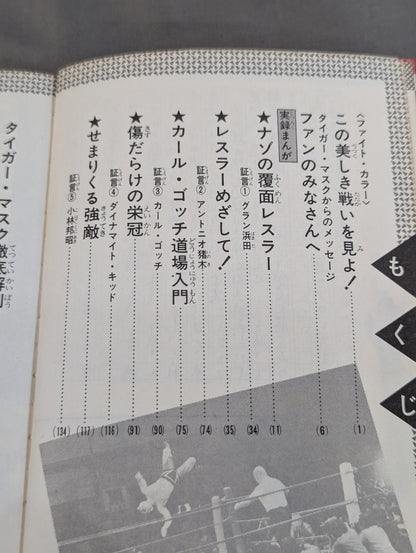 もくじ
〈ファイト・カラー〉
この美しき戦いを見よ!……(1)
タイガー・マスクからのメッセージ
ファンのみなさんへ……(6)
実録まんが
★ナゾの覆面レスラー……(11)
証言① グラン浜田……(34)
★レスラーめざして!……(35)
証言② アントニオ猪木……(74)
★カール・ゴッチ道場入門……(75)
証言③ カール・ゴッチ……(90)
★傷だらけの栄冠……(91)
証言④ ダイナマイト・キッド……(116)
★せまりくる強敵……(117)
証言⑤ 小林邦昭……(134)
タイガー・マスク徹底解剖